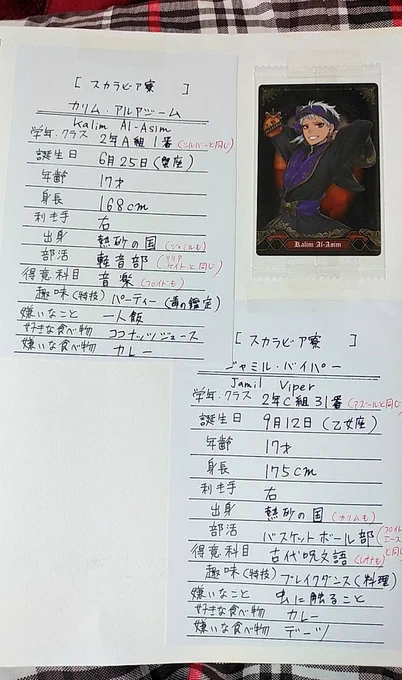 [ スカラビア寮 ]
カリム・アルアジーム
Kalim Al-Asim
学年.クラス 2年A組1番 (シルバーと同じ)
誕生日 6月25日(蟹座)
年齢 17才
身長 168cm
利き手 右
出身 熱砂の国 (ジャミルも)
部活 軽音部 (リリア ケイトと同じ)
得意科目 音楽 (フロイドも)
趣味(特技) パーティー (毒の鑑定)
嫌いなこと 一人飯
好きな食べ物 ココナッツジュース
嫌いな食べ物 カレー
Kalim Al-Asim
[ スカラビア寮 ]
ジャミル・バイパー
Jamil Viper
学年.クラス 2年C組31番 (アズールと同じ
誕生日 9月12日(乙女座)
年齢 17才
身長 175cm
利き手 右
出身 熱砂の国 (カリムも)
部活 バスケットボール部 (フロイド エース と同じ
得意科目 古代呪文語 (レオナも)
趣味(特技) ブレイクダンス(料理)
嫌いなこと 虫に触ること
好きな食べ物 カレー
嫌いな食べ物 デーツ